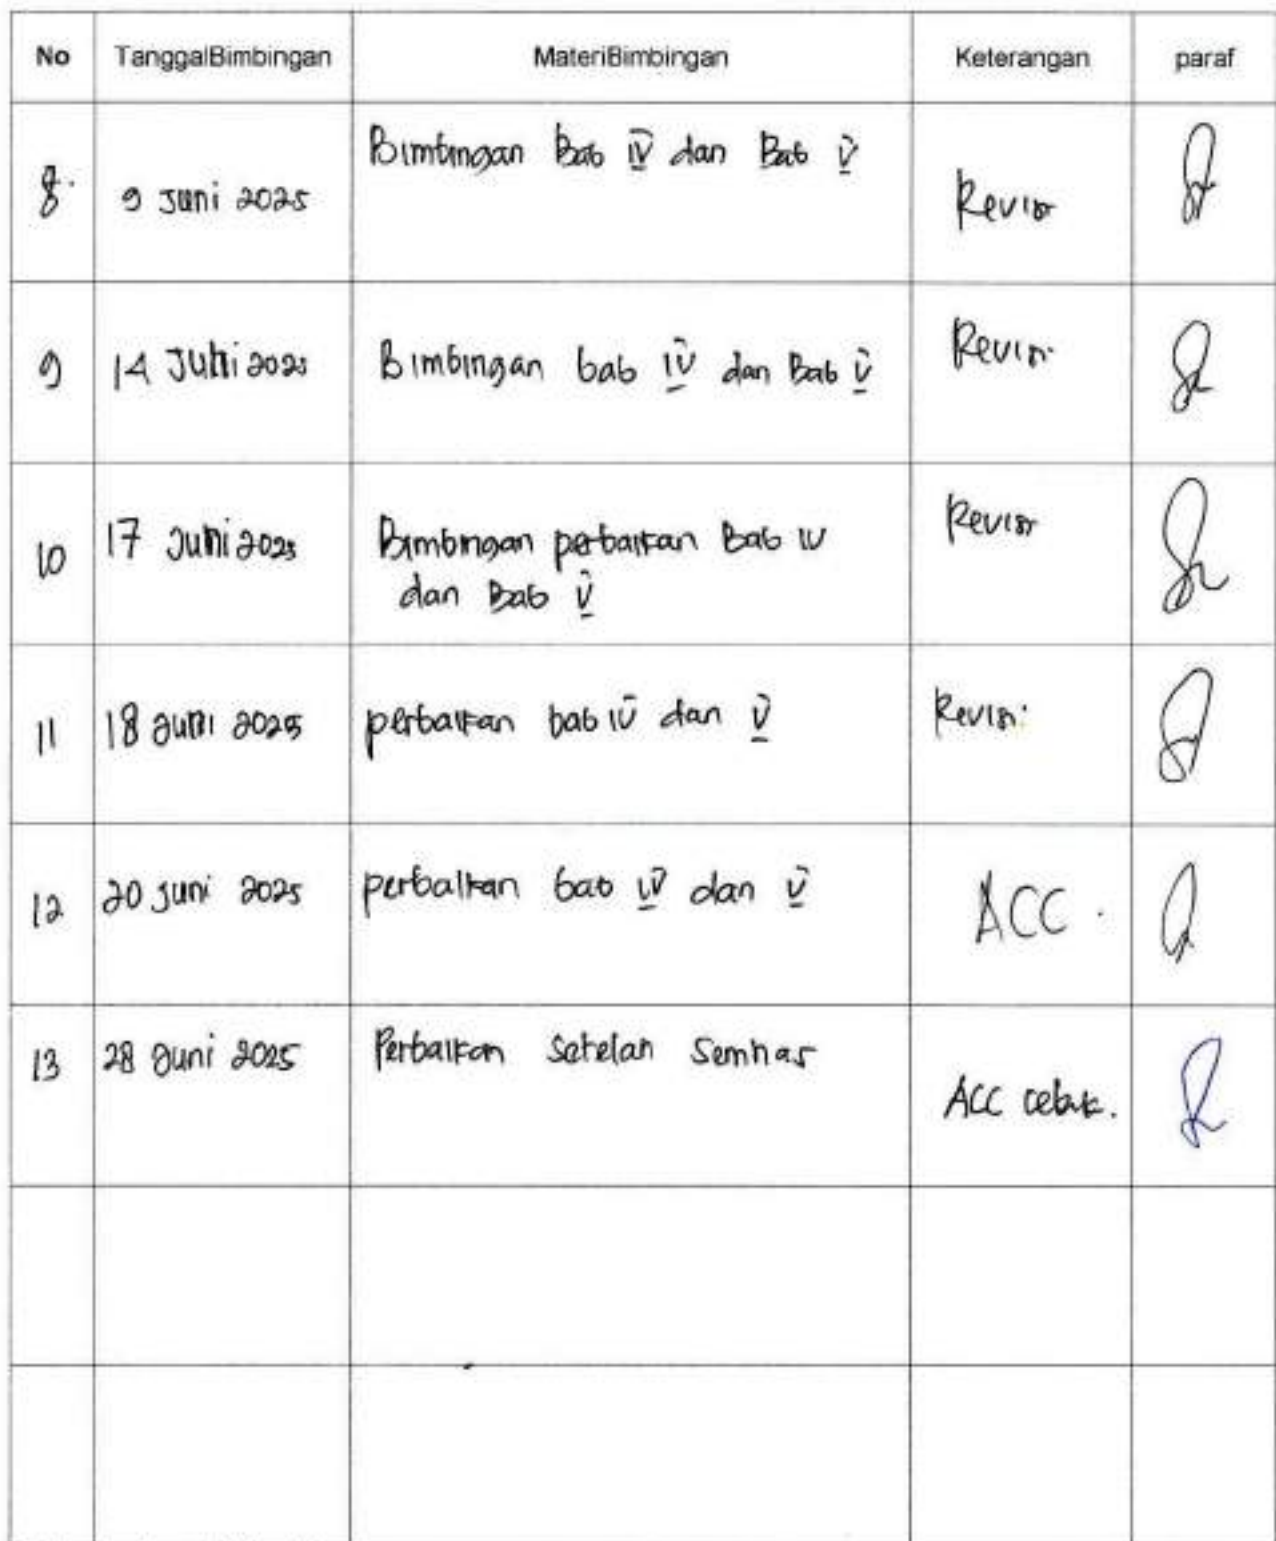 No TanggalBimbingan MateriBimbingan Keterangan paraf
8. 9 Juni 2025 Bimbingan Bab IV dan Bab V Revisi
9 14 Juni 2025 Bimbingan bab IV dan Bab V Revisi
10 17 Juni 2025 Bimbingan perbaikan Bab IV
dan Bab V Revisi
11 18 Juni 2025 perbaikan bab IV dan V Revisi
12 20 Juni 2025 perbaikan bab IV dan V ACC.
13 28 Juni 2025 Perbaikan Setelah Semhas ACC cetak.